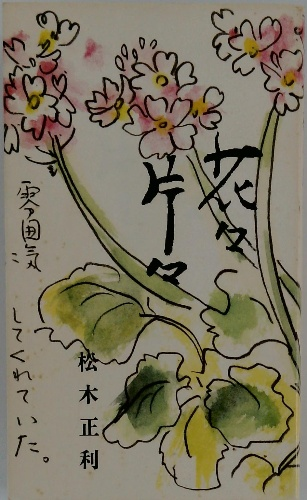 花々
片々
松木正利
雰囲気
してくれていた。